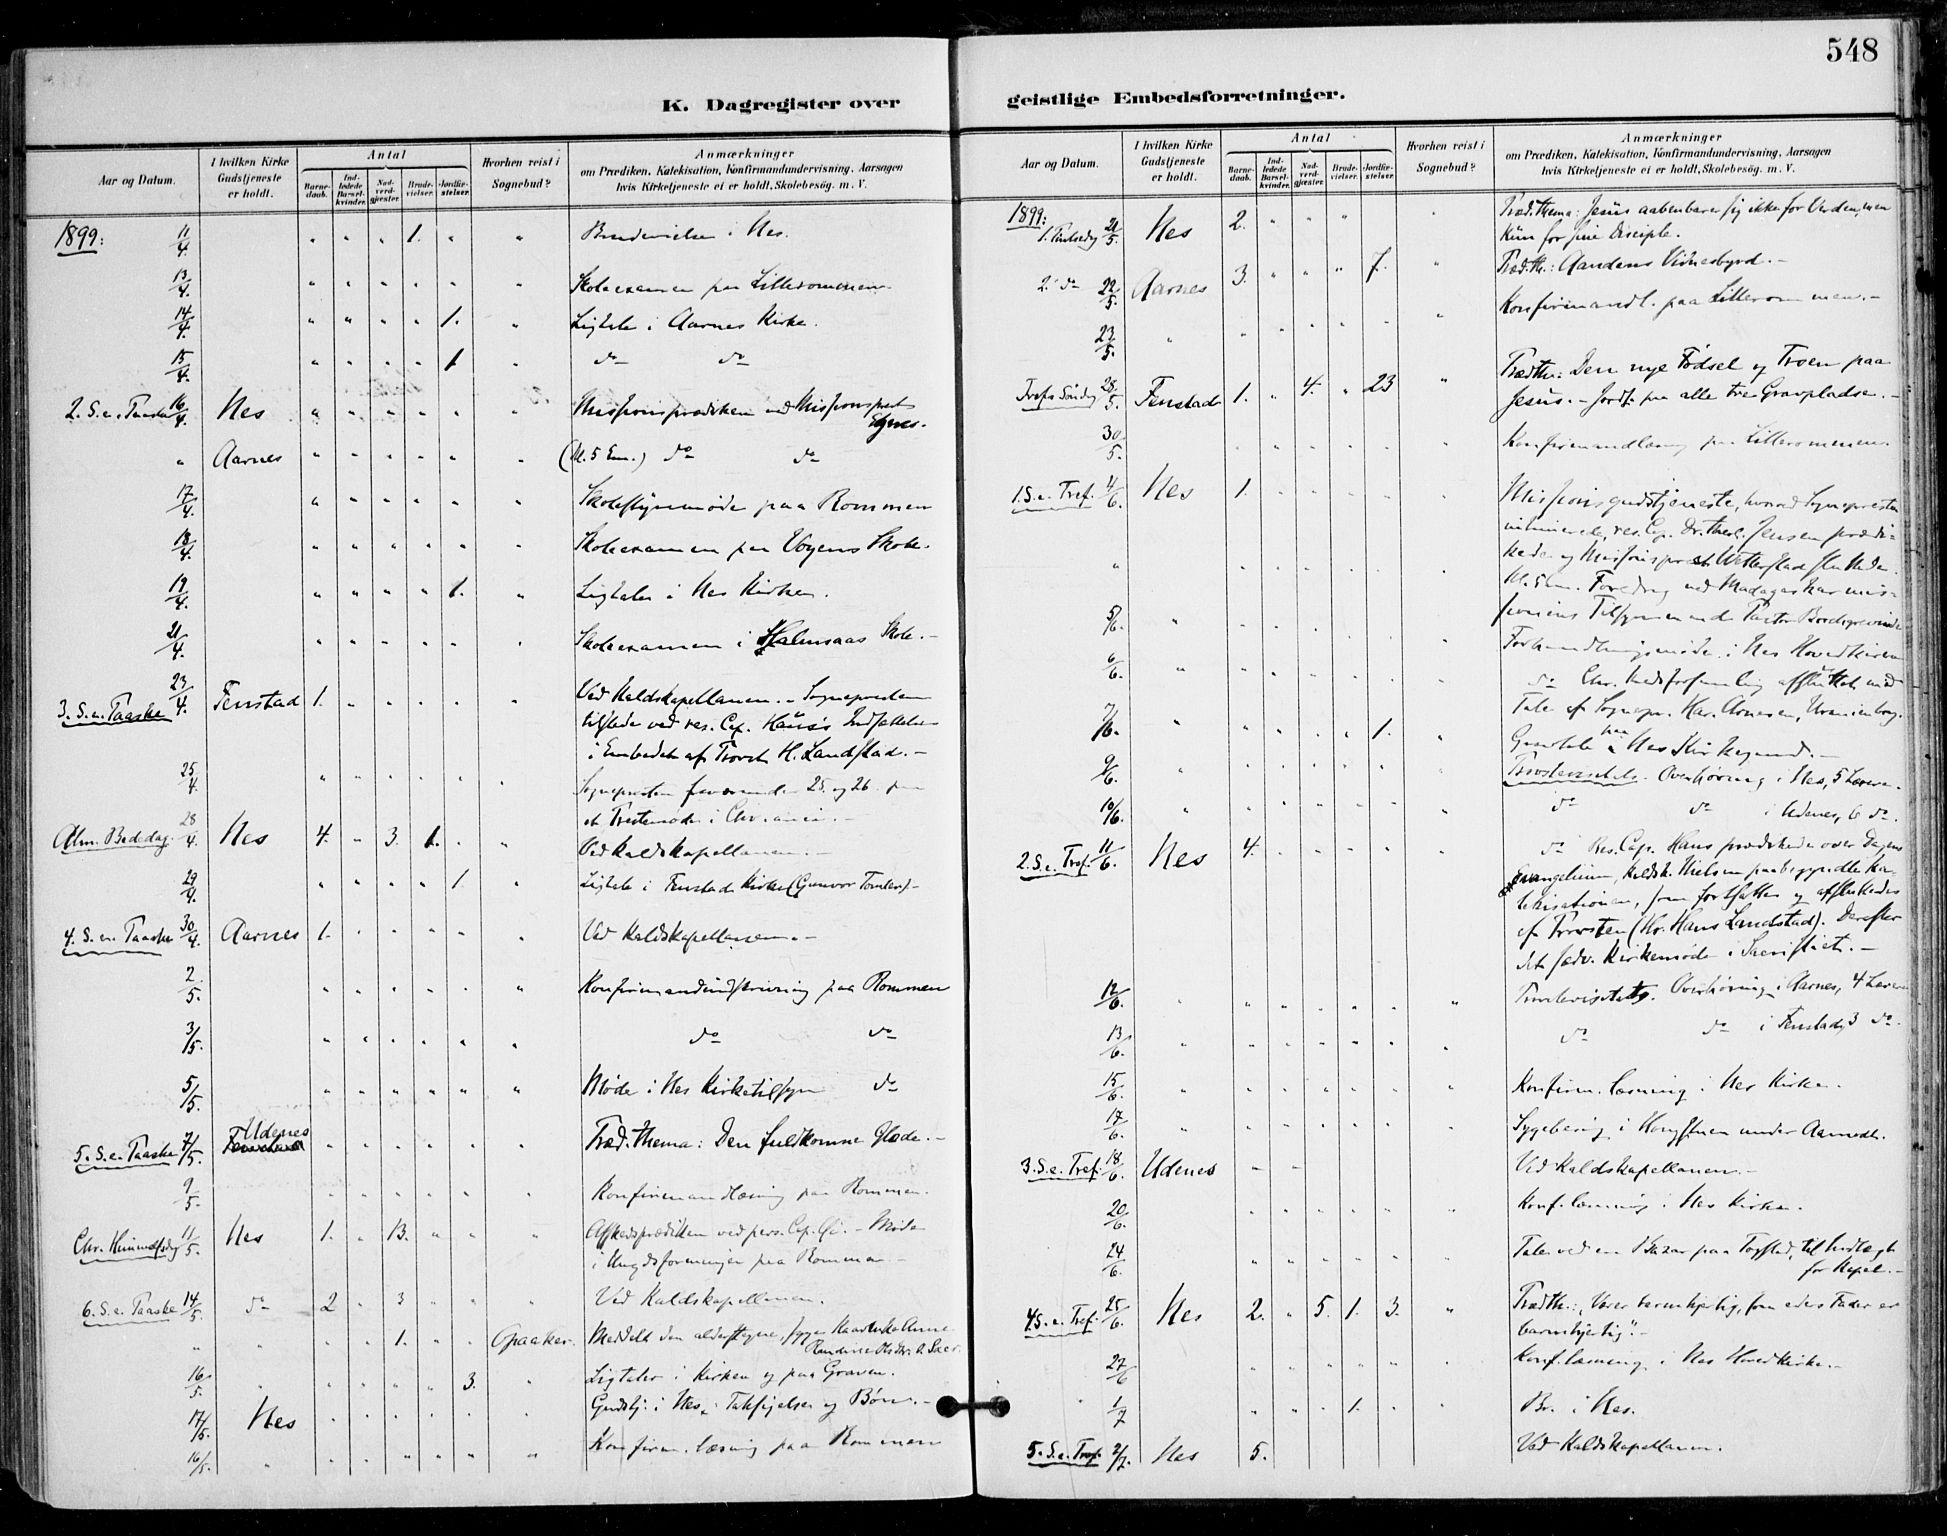 548
K. Dagregister over
geistlige Embedsforretninger.
Aar og Datum.
I hvilken Kirke Gudstjeneste er holdt.
Antal
Barnedaab. Indledede Barselkvinder. Nadverdgjester. Brudevielser. Jordfæstelser.
Hvorhen reist i Sognebud?
Anmærkninger
om Prædiken, Katekisation, Konfirmandundervisning, Aarsagen
hvis Kirketjeneste ei er holdt, Skolebesög. m. V.
1899: 11/4 " " " 1. " " Brudevielse i Nes.
13/4 " " " " " " Skoleexamen paa Lillerommen
14/4 " " " " 1. " Ligtale i Aarnes Kirke.
15/4 " " " " 1 " do do
2. S. e. Paaske 16/4 Nes " " " " " " Missionsprædiken ved Missionsprest
Egnes.
" Aarnes " " " " " " (Kl. 5 Em.) do do
17/4 " " " " " " Skolestyremøde paa Rommen
18/4 " " " " " " Skoleexamen paa Vogens Skole.
19/4 " " " " 1. " Ligtaler i Nes Kirken.
21/4 " " " " " " Skoleexamen i Halmsaas Skole.
3. S. e. Paaske 23/4 Fenstad 1. " " " " " Ved Kaldskapellanen. Sognepresten
tilstede ved res. Cap. Hans's Indsættelse
i Embedet af Provst H. Landstad. –
25/4 " " " " " " Sognepresten fraværende 25. og 26. paa
et Prestemøde i Chr.ania. –
Alm. Bededag 28/4 Nes 4. " 3. 1. " " Ved Kaldskapellanen. –
29/4 " " " " 1. " Ligtale i Fenstad Kirke (Gunvor Tomter) –
4. S. e. Paaske 30/4 Aarnes 1. " " " " " Ved Kaldskapellanen. –
2/5 " " " " " " Konfirmandindskrivning paa Rommen
3/5. " " " " " " do do
5/5. " " " " " " Møde i Nes Kirketilsyn do
5. S. e. Paaske 7/5. Udenes " " " " " " Præd. thema: Den fuldkomne Glæde. –
9/5 " " " " " " Konfirmandlæsning paa Rommen.
Chr. Himmelfsdag 11/5. Nes 1. " 13. " " " Afskedsprædiken ved pers. Cap. – Møde
i Ungdsforeningen paa Rommen –
6. S. e. Paaske 14/5. do 2 " 3 " " " Ved Kaldskapellanen.
" " " " 1. " " Opaaker. Meddelt den
16/5. " " " " " 3. " Ligtaler i Kirken og paa Graven.
17/5. Nes " " " " " " Gudstj. i Nes, Takksigelse og Bøn. –
16/5. " " " " " " " Konfirm. læsning paa Rommen
Aar og Datum.
I hvilken Kirke Gudstjeneste er holdt.
Antal
Barnedaab. Indledede Barselkvinder. Nadverdgjester. Brudevielser. Jordfæstelser.
Hvorhen reist i Sognebud?
Anmærkninger
om Prædiken, Katekisation, Konfirmandundervisning, Aarsagen
hvis Kirketjeneste ei er holdt, Skolebesög. m. V.
1899:
1. Pintsedag 21/5 Nes 2. " " " " " Præd. thema: Jesus aabenbarer sig ikke for Verden, men
kun for sine Disciple.
2. do 22/5. Aarnes 3. " " " 7. " Præd. th.: Aandens Vidnesbyrd. –
23/5. " " " " " " " Konfirmandl. paa Lillerommen. –
Trefs Søndag 28/5. Fenstad 1. " 4. " 23 " Præd th.: Den nye Fødsel og Troen paa
Jesus. – Jordf. paa alle tre Gravpladse. –
30/5. " " " " " " Konfirmandlæsning paa Lillerommen.
1. S. e. Tref. 4/6. Nes 1. " " " " " Missionsgudstjeneste, hvorved Sognepresten
intimerede, res. Cap. Dr. theol. Jensen prædi-
kede og Missionsprest Wetterstad sluttede.
" " " " " " " Kl. 5 Em. Foredrag ved Madagaskarmis-
sionens Tilsynsmand Pastor Borchgrevink
5/6. " " " " " " " Forhandlingsmøde i Nes Hovedkirke
6/6. " " " " " " " do Chr. Kredsforsamling afsluttet med
Tale af Sognepr. Har. Arnesen, Uranienborg.
7/6. " " " " " 1. " Gravtale paa Nes Kirkegaard. –
9/6. " " " " " " " Provstevisitats. Overhøring i Nes, 5 Lærere
10/6. " " " " " " do do i Udenes, 6 do.
2. S. e. Tref. 11/6. Nes 4. " " " " do Res. Cap. Hans prædikede over Dagens
Evangelium, Kaldsk. Nielsen paabegyndte Ka-
tekisationen, som fortsattes og afsluttedes
af Provsten (Hr. Hans Landstad). Derefter
det sædv. Kirkemøde i Sacristiet. –
12/6. " " " " " " " Provstevisitats. Overhøring i Aarnes, 4 Lærere
13/6. " " " " " " " do do i Fenstad, 3 do.
15/6. " " " " " " " Konfirm. læsning i Nes Kirke.
17/6. " " " " " " " Sygebesøg i under Aamodt.
3. S. e. Tref. 18/6. Udenes – – Ved Kaldskapellanen. –
20/6. " " " " " " Konf. læsning i Nes Kirke.
24/6. " " " " " " Tale ved en Bazar paa Togstad, til Indtægt
for Kapel. –
4. S. e. Tref. 25/6. Nes 2. " 5. 1. 3. " Præd th.: "Værer barmhjertig, som eders Fader er
barmhjertig". –
27/6 " " " " " " Konf. læsning i Nes Hovedkirke. –
1/7 " " " " 1. " " Br. i Nes.
5. S. e. Tref. 2/7. Nes 5. Ved Kaldskapellanen.